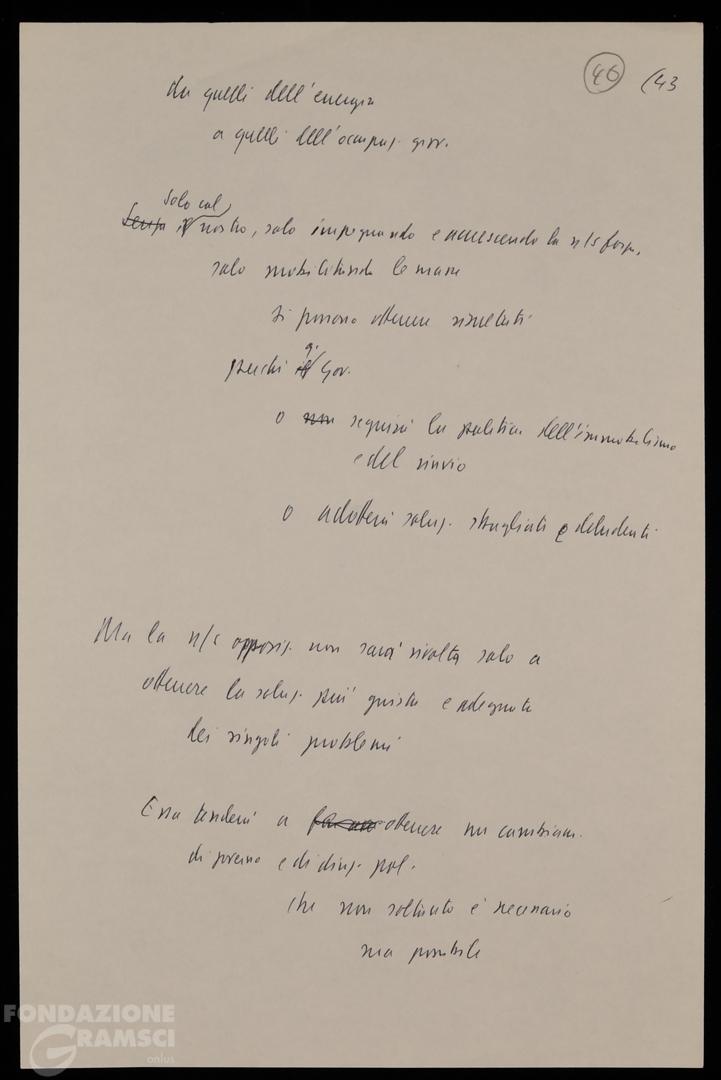 46 (43
da quelli dell'energia
a quelli dell'occupaz. giov.
Solo col
Senza il nostro, solo impegnando e accrescendo la n/s forza,
solo mobilitando le masse
si possono ottenere risultati
perché q.
il Gov.
o non seguirà la politica dell'immobilismo
e del rinvio
o adotterà soluz. sbagliate e deludenti
Ma la n/s opposiz. non sarà rivolta solo a
ottenere la soluz. più giusta e adeguata
dei singoli problemi
Essa tenderà a ottenere un cambiam.
di governo e di direz. pol.
che non soltanto è necessario
ma possibile
FONDAZIONE
GRAMSCI
onlus